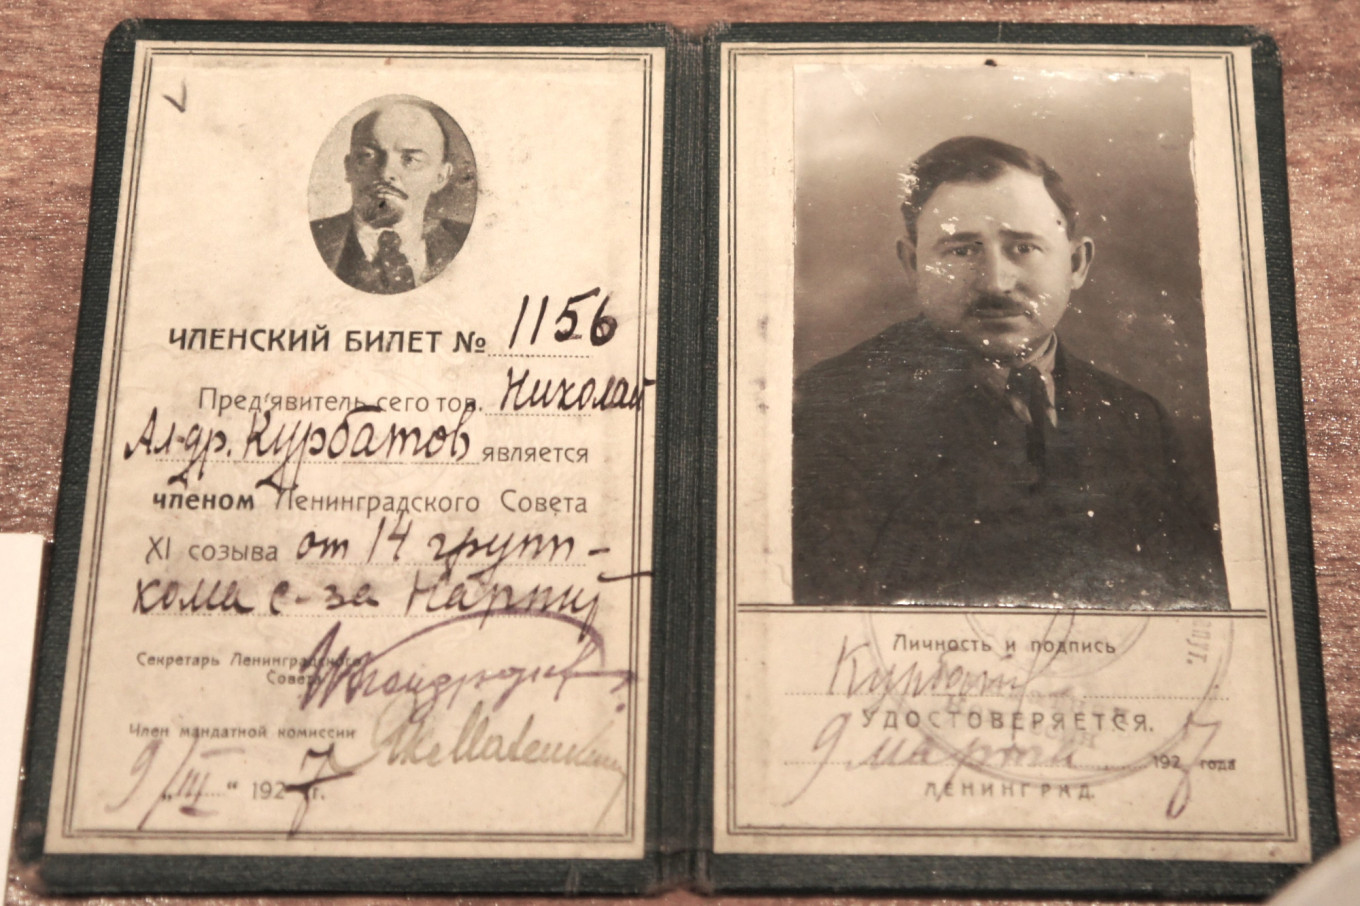 ЧЛЕНСКИЙ БИЛЕТ № 1156
Пред'явитель сего тов. Николай
Ал-др. Курбатов является
членом Ленинградского Совета
XI созыва от 14 групп-
кома с-за Нарпит
Секретарь Ленинградского
Совета
Член мандатной комиссии
9/III " 1927 г.
Личность и подпись
Курбатов
УДОСТОВЕРЯЕТСЯ.
9 марта 1927 года
ЛЕНИНГРАД.